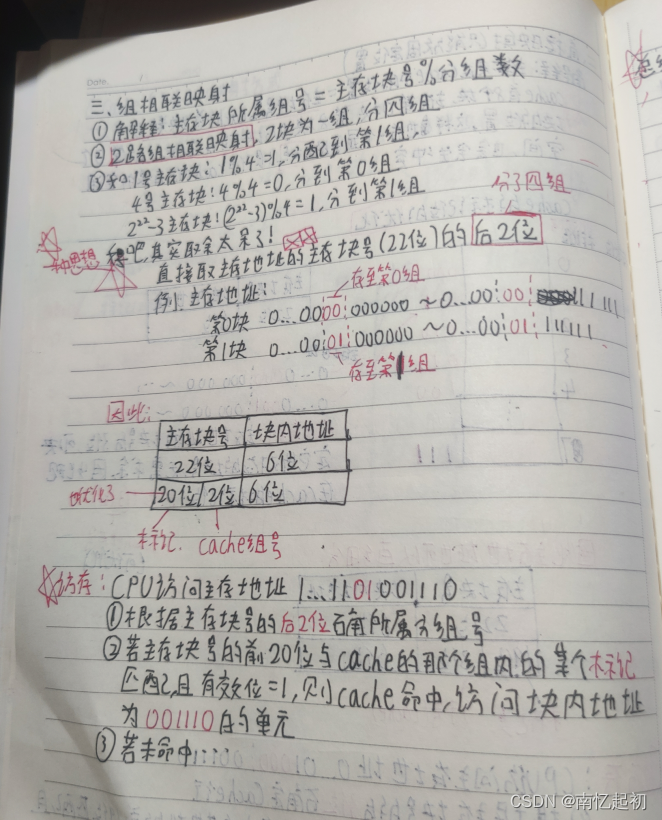 Date
三、组相联映射
① 解释:主存块所属组号 = 主存块号%分组数
② 2路组相联映射,2块为一组,分四组
③ 如1号主存块:1%4=1,分配到第1组,
4号主存块:4%4=0,分到第0组
2²²-3主存块:(2²²-3)%4=1,分到第1组
分了四组
思想
吧,其实取余太呆了!
直接取主存地址的主存块号(22位)的后2位
例,主存地址:
存至第0组
第0块 0...00 00 000000 ~ 0...00 00 111111
第1块 0...00 01 000000 ~ 0...00 01 111111
存至第1组
因此:
主存块号 块内地址
22位 6位
优化了 20位 2位 6位
标记 cache组号
访存:CPU访问主存地址 1...1101001110
①根据主存块号的后2位确所属分组号
②若主存块号的前20位与cache的那个组内的某个标记
匹配,且有效位=1,则cache命中,访问块内地址
为001110的单元
③若未命中
CSDN @南忆起初